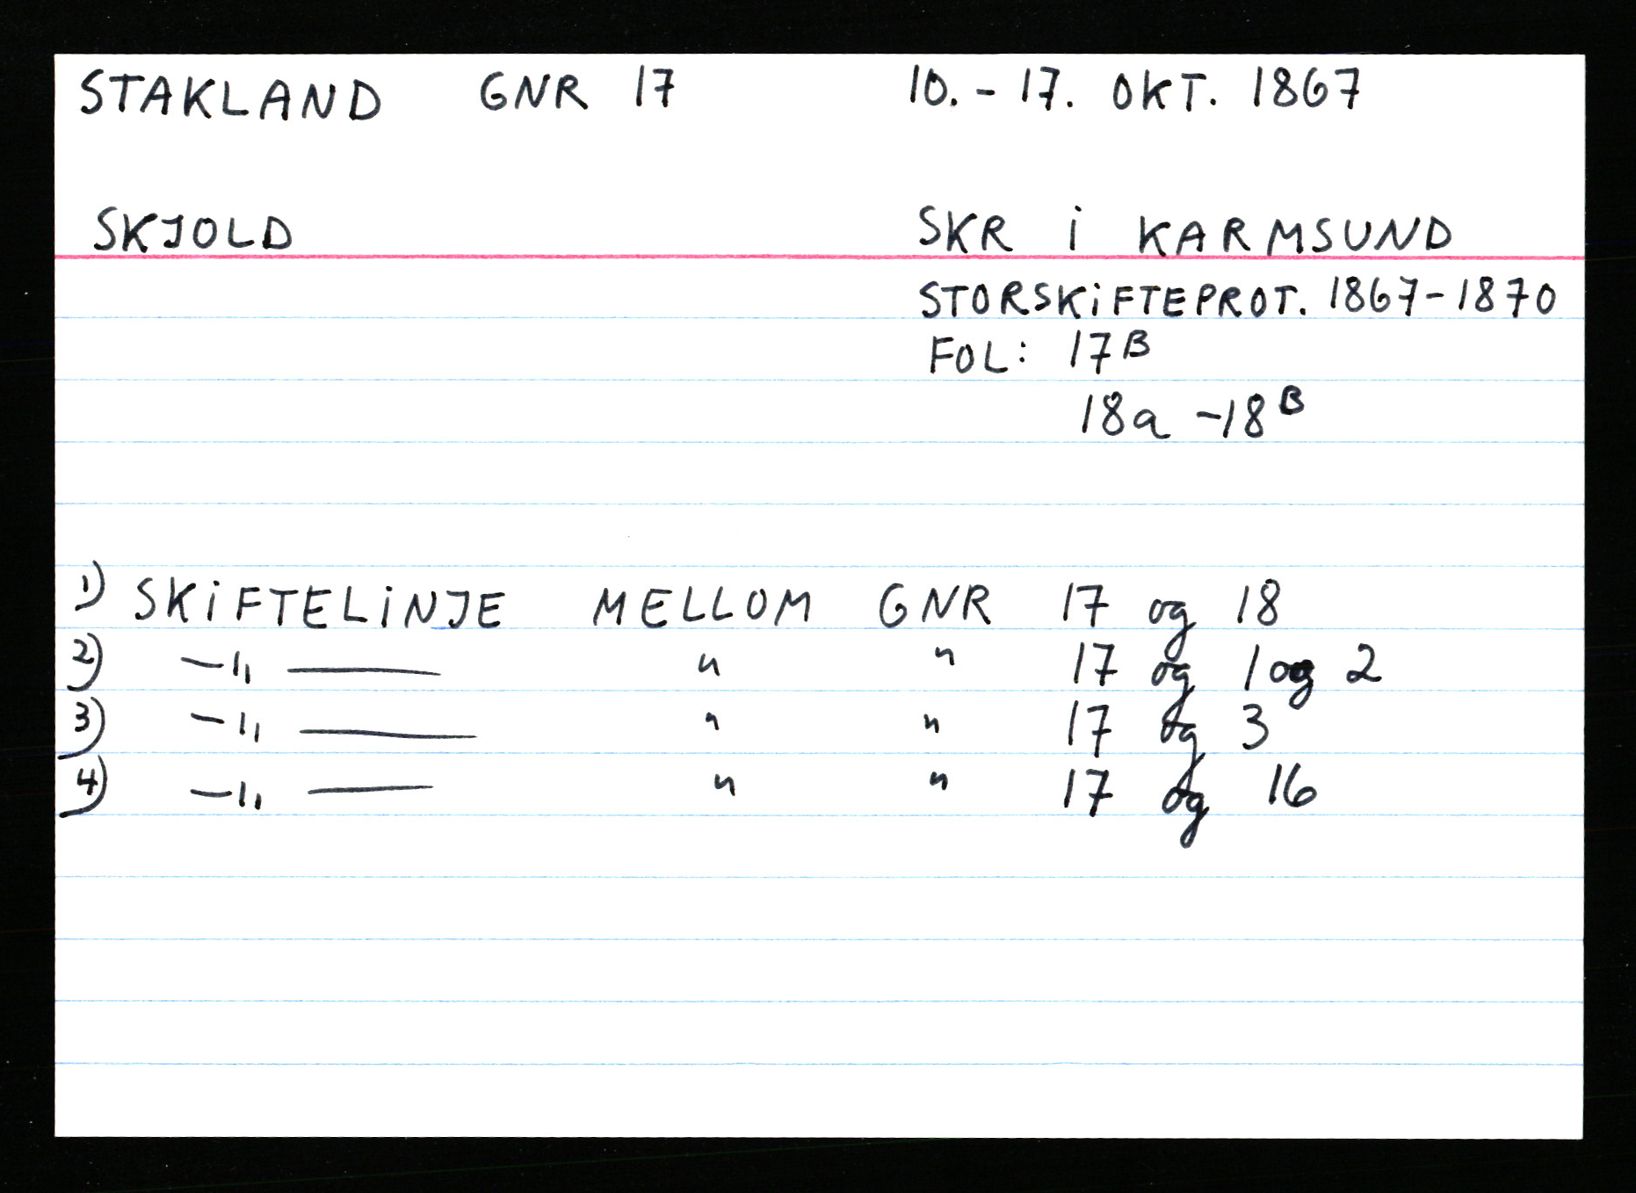 STAKLAND GNR 17 10.-17. OKT. 1867
SKJOLD SKR i KARMSUND
STORSKiFTEPROT. 1867-1870
FOL: 17B
18a -18B
1) SKiFTELiNJE MELLOM GNR 17 og 18
2) —"— " " 17 og 1 og 2
3) —"— " " 17 og 3
4) —"— " " 17 og 16